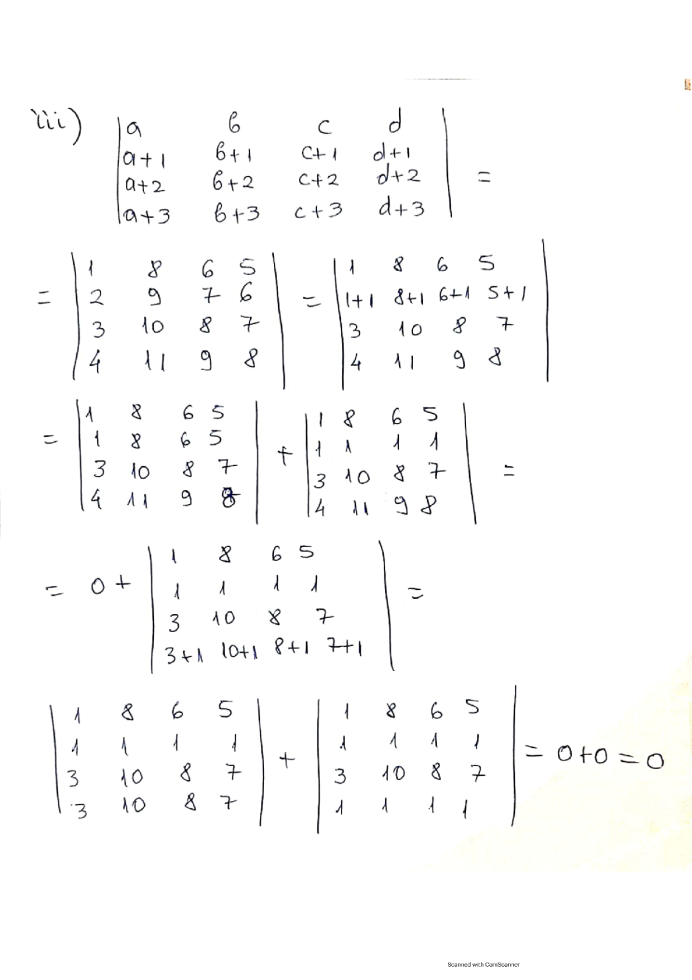 iii) |a b c d|
|a+1 b+1 c+1 d+1|
|a+2 b+2 c+2 d+2| =
|a+3 b+3 c+3 d+3|
|1 8 6 5| |1 8 6 5|
= |2 9 7 6| = |1+1 8+1 6+1 5+1|
|3 10 8 7| |3 10 8 7|
|4 11 9 8| |4 11 9 8|
|1 8 6 5| |1 8 6 5|
= |1 8 6 5| + |1 1 1 1|
|3 10 8 7| |3 10 8 7| =
|4 11 9 8| |4 11 9 8|
|1 8 6 5|
= 0 + |1 1 1 1| =
|3 10 8 7|
|3+1 10+1 8+1 7+1|
|1 8 6 5| |1 8 6 5|
|1 1 1 1| + |1 1 1 1| = 0+0=0
|3 10 8 7| |3 10 8 7|
|3 10 8 7| |1 1 1 1|
Scanned with CamScanner